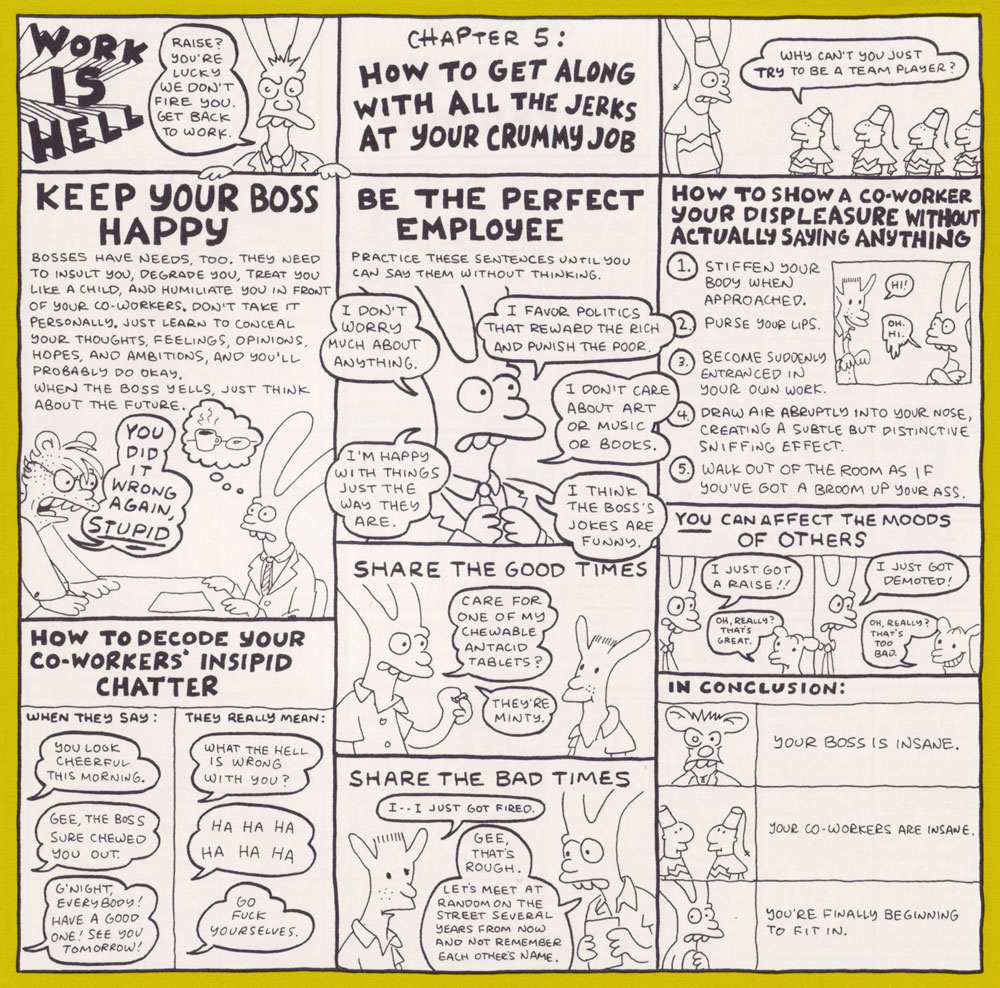 WORK
IS
HELL
RAISE?
YOU'RE
LUCKY
WE DON'T
FIRE YOU.
GET BACK
TO WORK.
CHAPTER 5:
HOW TO GET ALONG
WITH ALL THE JERKS
AT YOUR CRUMMY JOB
WHY CAN'T YOU JUST
TRY TO BE A TEAM PLAYER?
KEEP YOUR BOSS
HAPPY
BOSSES HAVE NEEDS, TOO. THEY NEED
TO INSULT YOU, DEGRADE YOU, TREAT YOU
LIKE A CHILD, AND HUMILIATE YOU IN FRONT
OF YOUR CO-WORKERS. DON'T TAKE IT
PERSONALLY. JUST LEARN TO CONCEAL
YOUR THOUGHTS, FEELINGS, OPINIONS,
HOPES, AND AMBITIONS, AND YOU'LL
PROBABLY DO OKAY.
WHEN THE BOSS YELLS, JUST THINK
ABOUT THE FUTURE.
YOU
DID
IT
WRONG
AGAIN,
STUPID
HOW TO DECODE YOUR
CO-WORKERS' INSIPID
CHATTER
WHEN THEY SAY:
THEY REALLY MEAN:
YOU LOOK
CHEERFUL
THIS MORNING.
WHAT THE HELL
IS WRONG
WITH YOU?
GEE, THE BOSS
SURE CHEWED
YOU OUT.
HA HA HA
HA HA HA
G'NIGHT,
EVERYBODY!
HAVE A GOOD
ONE! SEE YOU
TOMORROW!
GO
FUCK
YOURSELVES.
BE THE PERFECT
EMPLOYEE
PRACTICE THESE SENTENCES UNTIL YOU
CAN SAY THEM WITHOUT THINKING.
I DON'T
WORRY
MUCH ABOUT
ANYTHING.
I FAVOR POLITICS
THAT REWARD THE RICH
AND PUNISH THE POOR.
I DON'T CARE
ABOUT ART
OR MUSIC
OR BOOKS.
I'M HAPPY
WITH THINGS
JUST THE
WAY THEY
ARE.
I THINK
THE BOSS'S
JOKES ARE
FUNNY.
SHARE THE GOOD TIMES
CARE FOR
ONE OF MY
CHEWABLE
ANTACID
TABLETS?
THEY'RE
MINTY.
SHARE THE BAD TIMES
I--I JUST GOT FIRED.
GEE,
THAT'S
ROUGH.
LET'S MEET AT
RANDOM ON THE
STREET SEVERAL
YEARS FROM NOW
AND NOT REMEMBER
EACH OTHER'S NAME.
HOW TO SHOW A CO-WORKER
YOUR DISPLEASURE WITHOUT
ACTUALLY SAYING ANYTHING
1. STIFFEN YOUR
BODY WHEN
APPROACHED.
2. PURSE YOUR LIPS.
3. BECOME SUDDENLY
ENTRANCED IN
YOUR OWN WORK.
4. DRAW AIR ABRUPTLY INTO YOUR NOSE,
CREATING A SUBTLE BUT DISTINCTIVE
SNIFFING EFFECT.
5. WALK OUT OF THE ROOM AS IF
YOU'VE GOT A BROOM UP YOUR ASS.
HI!
OH.
HI.
YOU CAN AFFECT THE MOODS
OF OTHERS
I JUST GOT
A RAISE!!
OH, REALLY?
THAT'S
GREAT.
I JUST GOT
DEMOTED!
OH, REALLY?
THAT'S
TOO
BAD.
IN CONCLUSION:
YOUR BOSS IS INSANE.
YOUR CO-WORKERS ARE INSANE.
YOU'RE FINALLY BEGINNING
TO FIT IN.